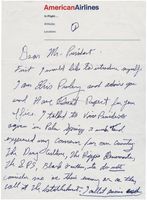 AmericanAirlines
In Flight...
Altitude;
Location;
①
Dear Mr. President.
First I would like to introduce myself.
I am Elvis Presley and admire you
and Have Great Respect for your
office. I talked to Vice President
Agnew in Palm Springs 3 weeks ago and
expressed my concern for our country.
The Drug Culture, The Hippie Elements,
The SDS, Black Panthers, etc do not
consider me as their enemy or as they
call it the establishment. I call it